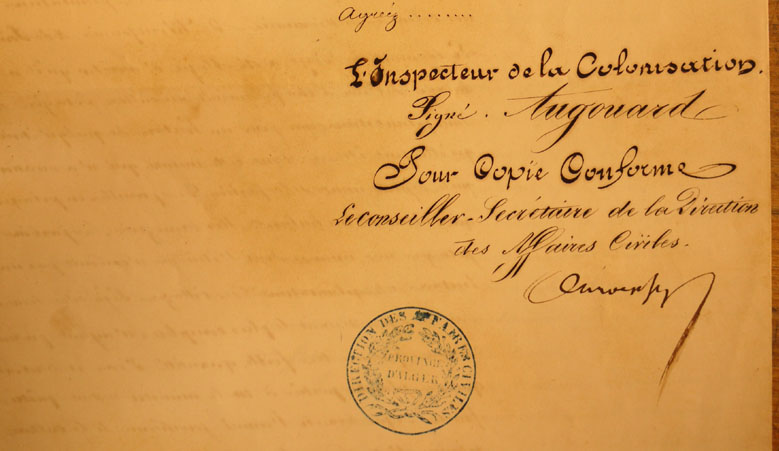 Agréez ........
L'Inspecteur de la Colonisation.
Signé. Augouard
Pour Copie Conforme
Le conseiller-Secrétaire de la Direction
des Affaires Civiles.
DIRECTION DES AFFAIRES CIVILES
PROVINCE
D'ALGER